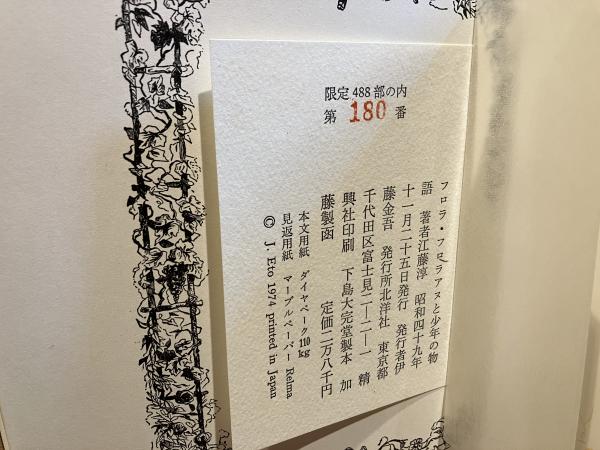 限定 488 部の内
第 180 番
フロラ・フロラアヌと少年の物
語 著者江藤淳 昭和四十九年
十一月二十五日発行 発行者伊
藤金吾 発行所北洋社 東京都
千代田区富士見二―二―一 精
興社印刷 下島大完堂製本 加
藤製函 定価二万八千円
本文用紙 ダイヤペーク110kg
見返用紙 マーブルペーパー Relma
© J. Eto 1974 printed in Japan